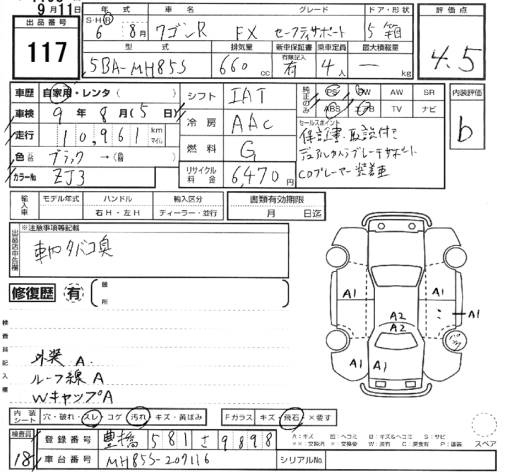 9月11日
出品番号
117
年 車名 グレード ドア・形状 評価点
S・H・R
6 8月 ワゴンR FX セーフティサポート 5 箱
4.5
型式 排気量 新車保証書 乗車定員 最大積載量
5BA-MH85S 660cc 有 4人 ― kg
有無記入
車歴 自家用・レンタ( )
車検 9年 8月(5日)
走行 10,961 km マイル
色 ブラック → (替)
カラーNo ZJ3
シフト IAT
冷房 AAC
燃料 G
リサイクル料金 6,470円
純正のみ
PS PW AW SR
ABS エアB TV ナビ
セールスポイント
保証書 取説付
デュアルカメラブレーキサポート
CDプレーヤー装着車
内装評価
b
輸入車
モデル年式 ハンドル 輸入区分
右H・左H ディーラー・並行
書類有効期限
月 日迄
出品店申告欄
※注意事項等記載
車内タバコ臭
修復歴 有
箇所
検査員記入欄
外装 A
ルーフ線A
WキャップA
A1 A1 A2 A2 A1 A1 A1
内装シート 穴・破れ・スレ コゲ 汚れ キズ・黄ばみ
Fガラス キズ 飛石 ×後す
スペア
検査員
18
登録番号 豊橋 581 さ 9898
車台番号 MH85S-207116
シリアルNo.